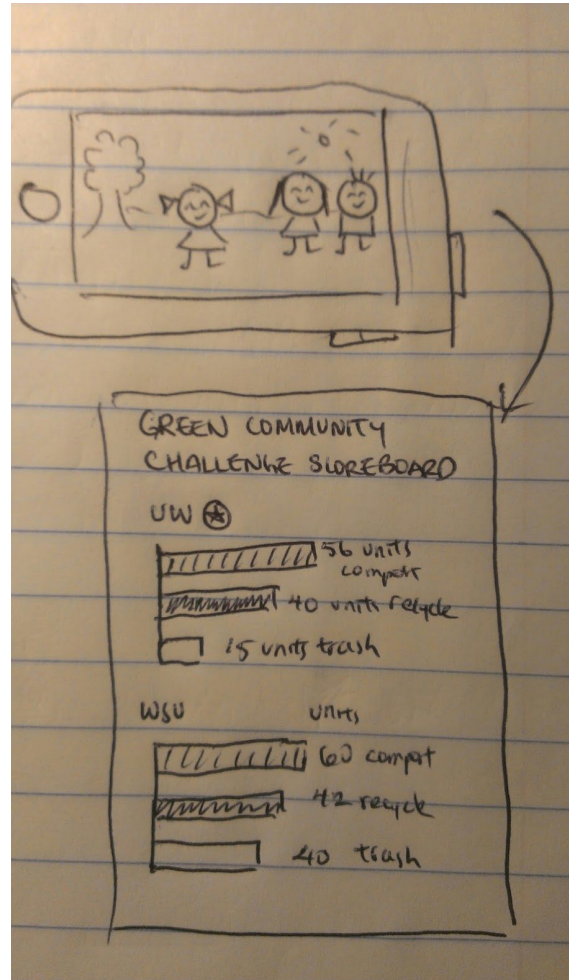 GREEN COMMUNITY
CHALLENGE SCOREBOARD
UW
56 units
compost
40 units recycle
15 units trash
WSU units
60 compost
42 recycle
40 trash